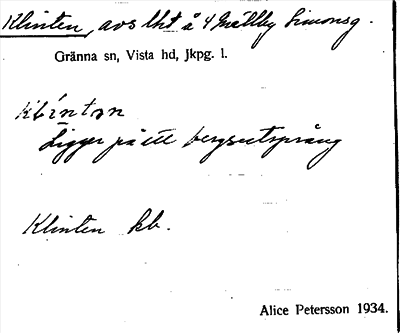 Klinten, avs lht å 4 Mällby Simonsg.
Gränna sn, Vista hd, Jkpg. l.
Klíntən
Ligger på ett bergsutsprång
Klinten kb.
Alice Petersson 1934.